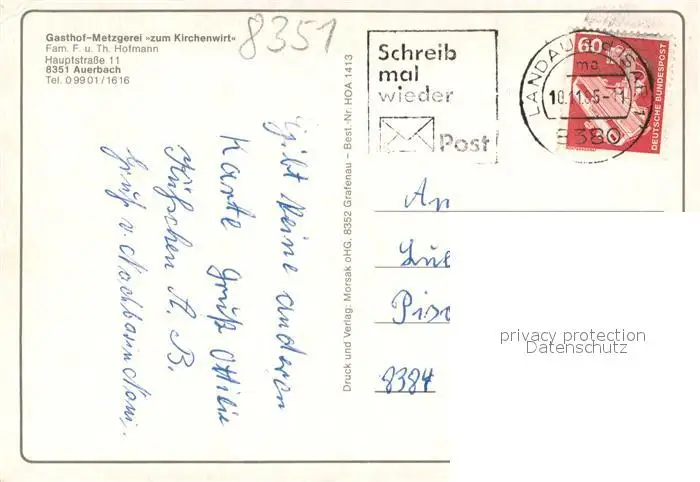 Gasthof-Metzgerei »zum Kirchenwirt«
Fam. F. u. Th. Hofmann
Hauptstraße 11
8351 Auerbach
Tel. 09901/1616
8351
Schreib
mal
wieder
Post
LANDAU
10.11.85-11
8380
60
DEUTSCHE BUNDESPOST
Druck und Verlag: Morsak oHG, 8352 Grafenau – Best.-Nr. HOA 1413
Gibt keine anderen
Karte Gruß Ottilie
Küßchen A. B.
Gruß v. Nachbarin
An
8384
privacy protection
Datenschutz